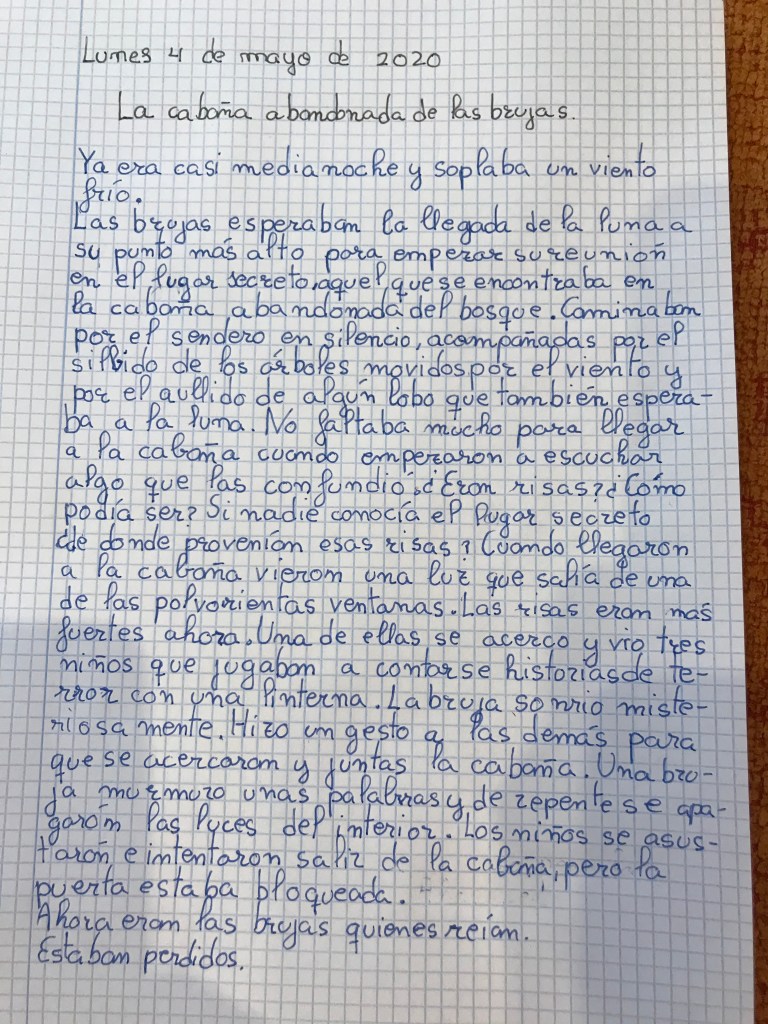 Lunes 4 de mayo de 2020
La cabaña abandonada de las brujas.
Ya era casi medianoche y soplaba un viento
frío.
Las brujas esperaban la llegada de la luna a
su punto más alto para emperar su reunión
en el lugar secreto, aquel que se encontraba en
la cabaña abandonada del bosque. Caminaban
por el sendero en silencio, acompañadas por el
silbido de los árboles movidos por el viento y
por el aullido de algún lobo que también espera-
ba a la luna. No faltaba mucho para llegar
a la cabaña cuando emperaron a escuchar
algo que las confundió. ¿Eran risas? ¿Cómo
podía ser? Si nadie conocía el lugar secreto
¿de donde provenían esas risas? Cuando llegaron
a la cabaña vieron una luz que salía de una
de las polvorientas ventanas. Las risas eran más
fuertes ahora. Una de ellas se acerco y vio tres
niños que jugaban a contarse historias de te-
rror con una linterna. La bruja sonrio miste-
riosamente. Hizo un gesto a las demás para
que se acercaran y juntas la cabaña. Una bru-
ja murmuro unas palabras y de repente se apa-
garon las luces del interior. Los niños se asus-
taron e intentaron salir de la cabaña, pero la
puerta estaba bloqueada.
Ahora eran las brujas quienes reían.
Estaban perdidos.